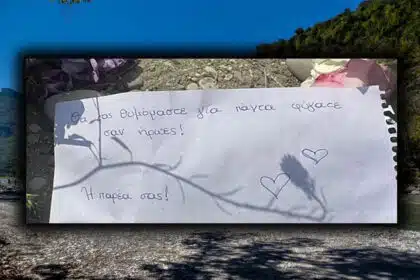 Θα σας θυμόμαστε για πάντα φύγατε
σαν ήρωες!
Η παρέα σας!